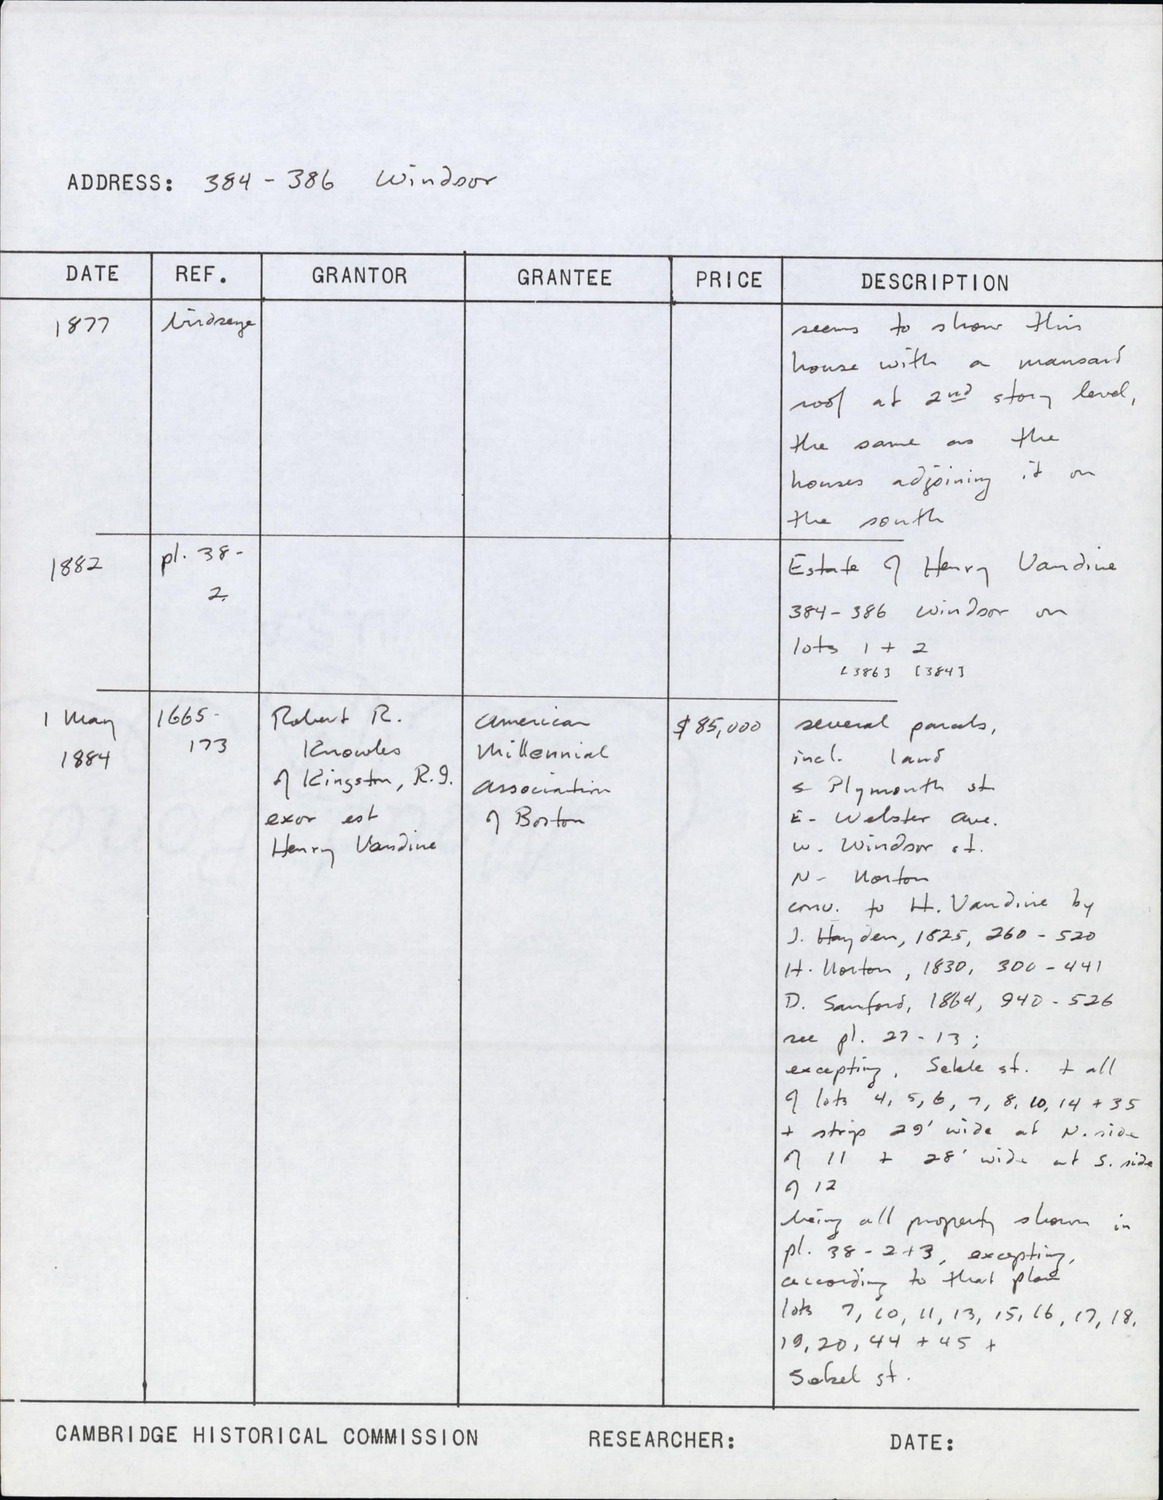 ADDRESS: 384-386 Windsor
DATE REF. GRANTOR GRANTEE PRICE DESCRIPTION
1877 birdseye
seems to show this
house with a mansard
roof at 2nd story level,
the same as the
houses adjoining it on
the south
1882 pl. 38-
2
Estate of Henry Vandine
384-386 Windsor on
lots 1 + 2
[386] [384]
1 May
1884
1665-
173
Robert R.
Knowles
of Kingston, R.I.
exor est
Henry Vandine
American
Millennial
Association
of Boston
$85,000
several parcels,
incl. land
S Plymouth st
E- Webster Ave.
W. Windsor st.
N- Norton
conv. to H. Vandine by
J. Hayden, 1825, 260-520
H. Norton, 1830, 300-441
D. Sanford, 1864, 940-526
see pl. 27-13;
excepting, st. + all
of lots 4, 5, 6, 7, 8, 10, 14 + 35
+ strip 29' wide at N. side
of 11 + 28' wide at S. side
of 12
being all property shown in
pl. 38-2+3, excepting,
according to that plan
lots 7, 10, 11, 13, 15, 16, 17, 18,
19, 20, 44 + 45 +
st.
CAMBRIDGE HISTORICAL COMMISSION RESEARCHER: DATE: